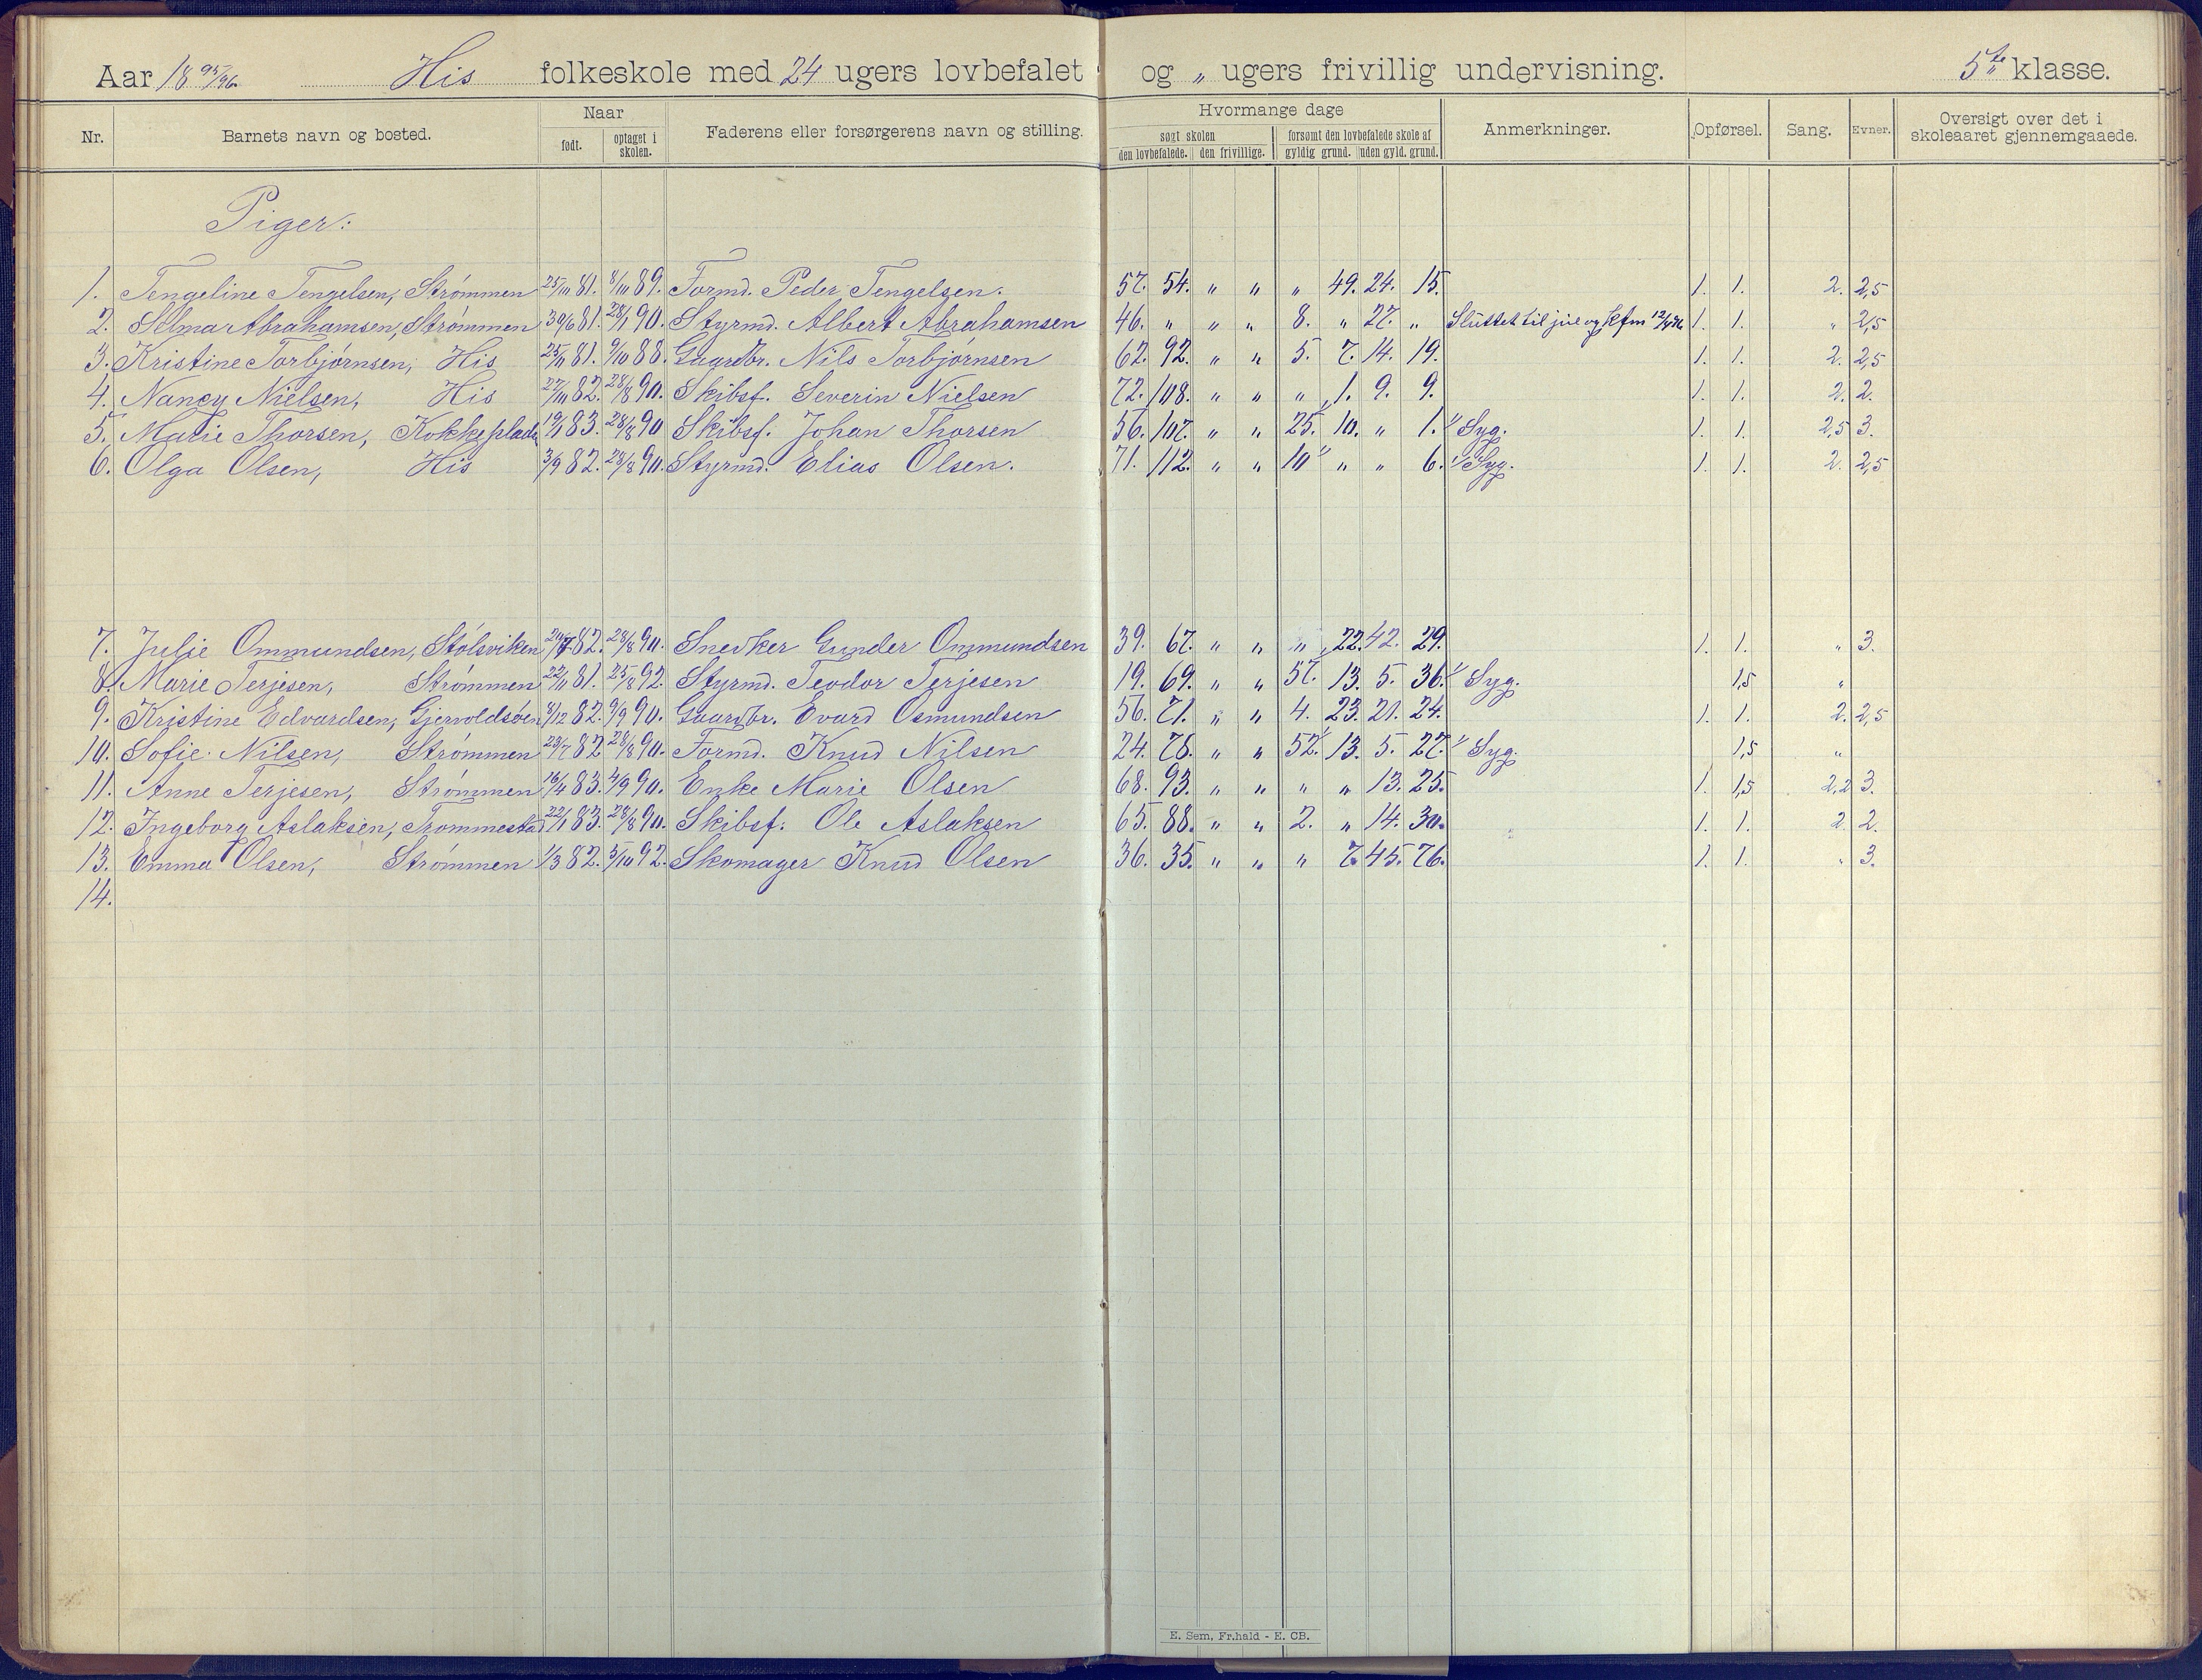 Aar 18 95/96. His folkeskole med 24 ugers lovbefalet og „ ugers frivillig undervisning. 5te klasse.
Nr. Barnets navn og bosted. Naar født. optaget i skolen. Faderens eller forsørgerens navn og stilling. Hvormange dage søgt skolen den lovbefalede. den frivillige. forsømt den lovbefalede skole af gyldig grund. uden gyld. grund. Anmerkninger. Opførsel. Sang. Evner. Oversigt over det i skoleaaret gjennemgaaede.
Piger:
1. Tengeline Tengelsen, Strømmen 25/10 81. 8/10 89. Formd. Peder Tengelsen. 57. 54. „ „ „ 49. 24. 15. 1. 1. 2. 2,5
2. Selma Abrahamsen, Strømmen 30/6 81. 28/1 90. Styrmd. Albert Abrahamsen 46. „ „ „ 8. „ 27. „ Sluttet til jul og kfm 12/4 96. 1. 1. „ 2,5
3. Kristine Torbjørnsen, His 25/11 81. 9/10 88. Gaardbr. Nils Torbjørnsen 62. 92. „ „ 5. 7. 14. 19. 1. 1. 2. 2,5
4. Nancy Nielsen, His 27/10 82. 28/8 90. Skibsf. Severin Nielsen 72. 108. „ „ „ 1. 9. 9. 1. 1. 2. 2.
5. Marie Thorsen, Kokkeplads 19/1 83. 28/8 90 Skibsf. Johan Thorsen 56. 107. „ „ 25. 10. „ 1. 1/ Syg. 1. 1. 2,5 3.
6. Olga Olsen, His 3/9 82. 28/8 90. Styrmd. Elias Olsen. 71. 112. „ „ 10 1/ „ „ 6. 1/ Syg. 1. 1. 2. 2,5
7. Julie Ommundsen, Stølsviken 20/7 82. 28/8 90. Snedker Gunder Ommundsen 39. 67. „ „ „ 22. 42. 29. 1. 1. „ 3.
8. Marie Terjesen, Strømmen 22/11 81. 25/8 92. Styrmd. Teodor Terjesen 19. 69. „ „ 57. 13. 5. 36. 1/ Syg. 1,5 „
9. Kristine Edvardsen, Gjervoldsøen 8/12 82. 9/9 90. Gaardbr. Evard Osmundsen 56. 71. „ „ 4. 23. 21. 24. 1. 1. 2. 2,5
10. Sofie Nilsen, Strømmen 23/7 82. 28/8 90. Formd. Knud Nilsen 24. 78. „ „ 52. 1/ 13. 5. 27. 1/ Syg. 1,5 „
11. Anne Terjesen, Strømmen 16/4 83. 4/9 90. Enke Marie Olsen 68. 93. „ „ „ „ 13. 25. 1. 1,5 2,2 3.
12. Ingeborg Aslaksen, Trommestad 22/1 83. 28/8 90. Skibsf. Ole Aslaksen 65. 88. „ „ 2. „ 14. 30. 1. 1. 2. 2.
13. Emma Olsen, Strømmen 1/3 82. 5/10 92. Skomager Knud Olsen 36. 35. „ „ „ 7. 45. 76. 1. 1. „ 3.
14.
E. Sem, Fr.hald - E. CB.